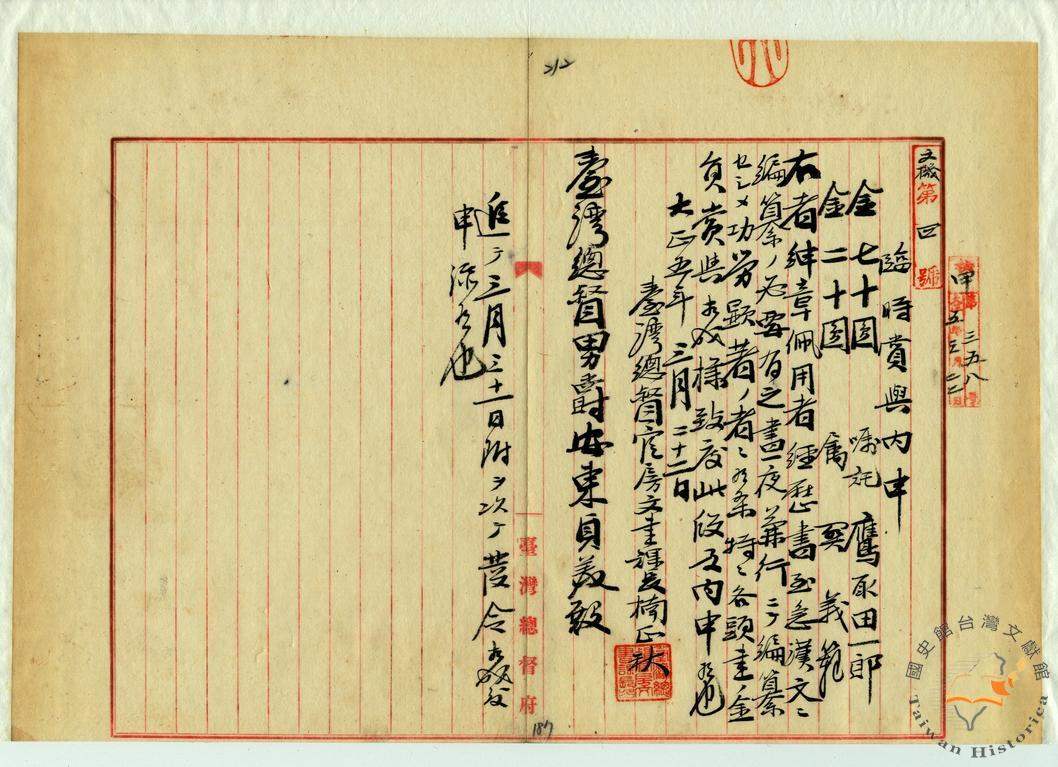 212
文機第四號
甲第三五八號
五年三月二二日
臨時賞與內申
金七十圓 嘱託 鷹取田一郎
金二十圓 属 巽義範
右者紳章佩用者經歷書至急漢文ニ
編纂ノ必要有之晝夜兼行ニテ編纂
セシメ功勞顯著ノ者ニ有之候條特ニ各頭書ノ金
員賞與相成様致度此段及內申候也
大正五年三月二十二日
臺灣總督官房文書課長楠正秋
臺灣總督男爵安東貞美殿
追テ三月三十一日附ヲ以テ發令相成度
申添候也
臺灣總督府
187
國史館台灣文獻館
Taiwan Historica